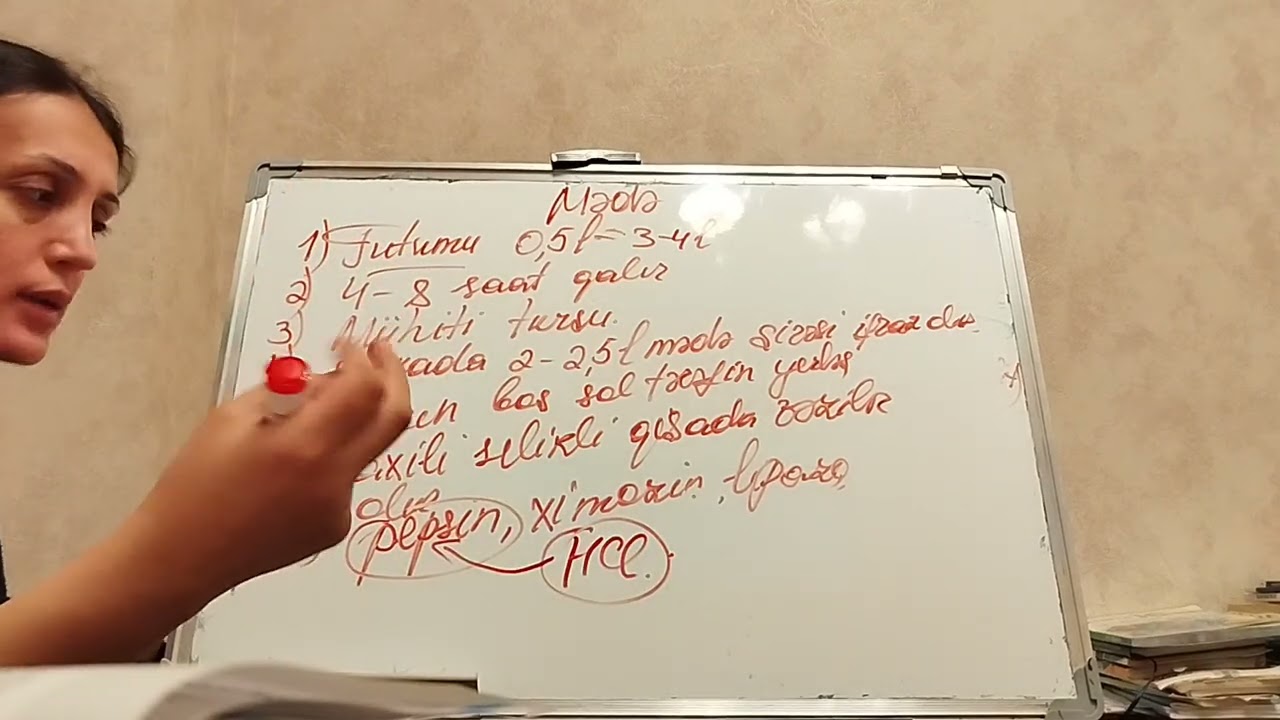 Mədə
1) Tutumu 0,5l - 3-4l
2) 4 - 8 saat qalır
3) Mühiti turşu.
2 - 2,5l mədə şirəsi ifraz olu
boş sol tərəfin yerləş
selikli qişada vəzilr
olur
pepsin, ximozin, lipaza,
HCl.